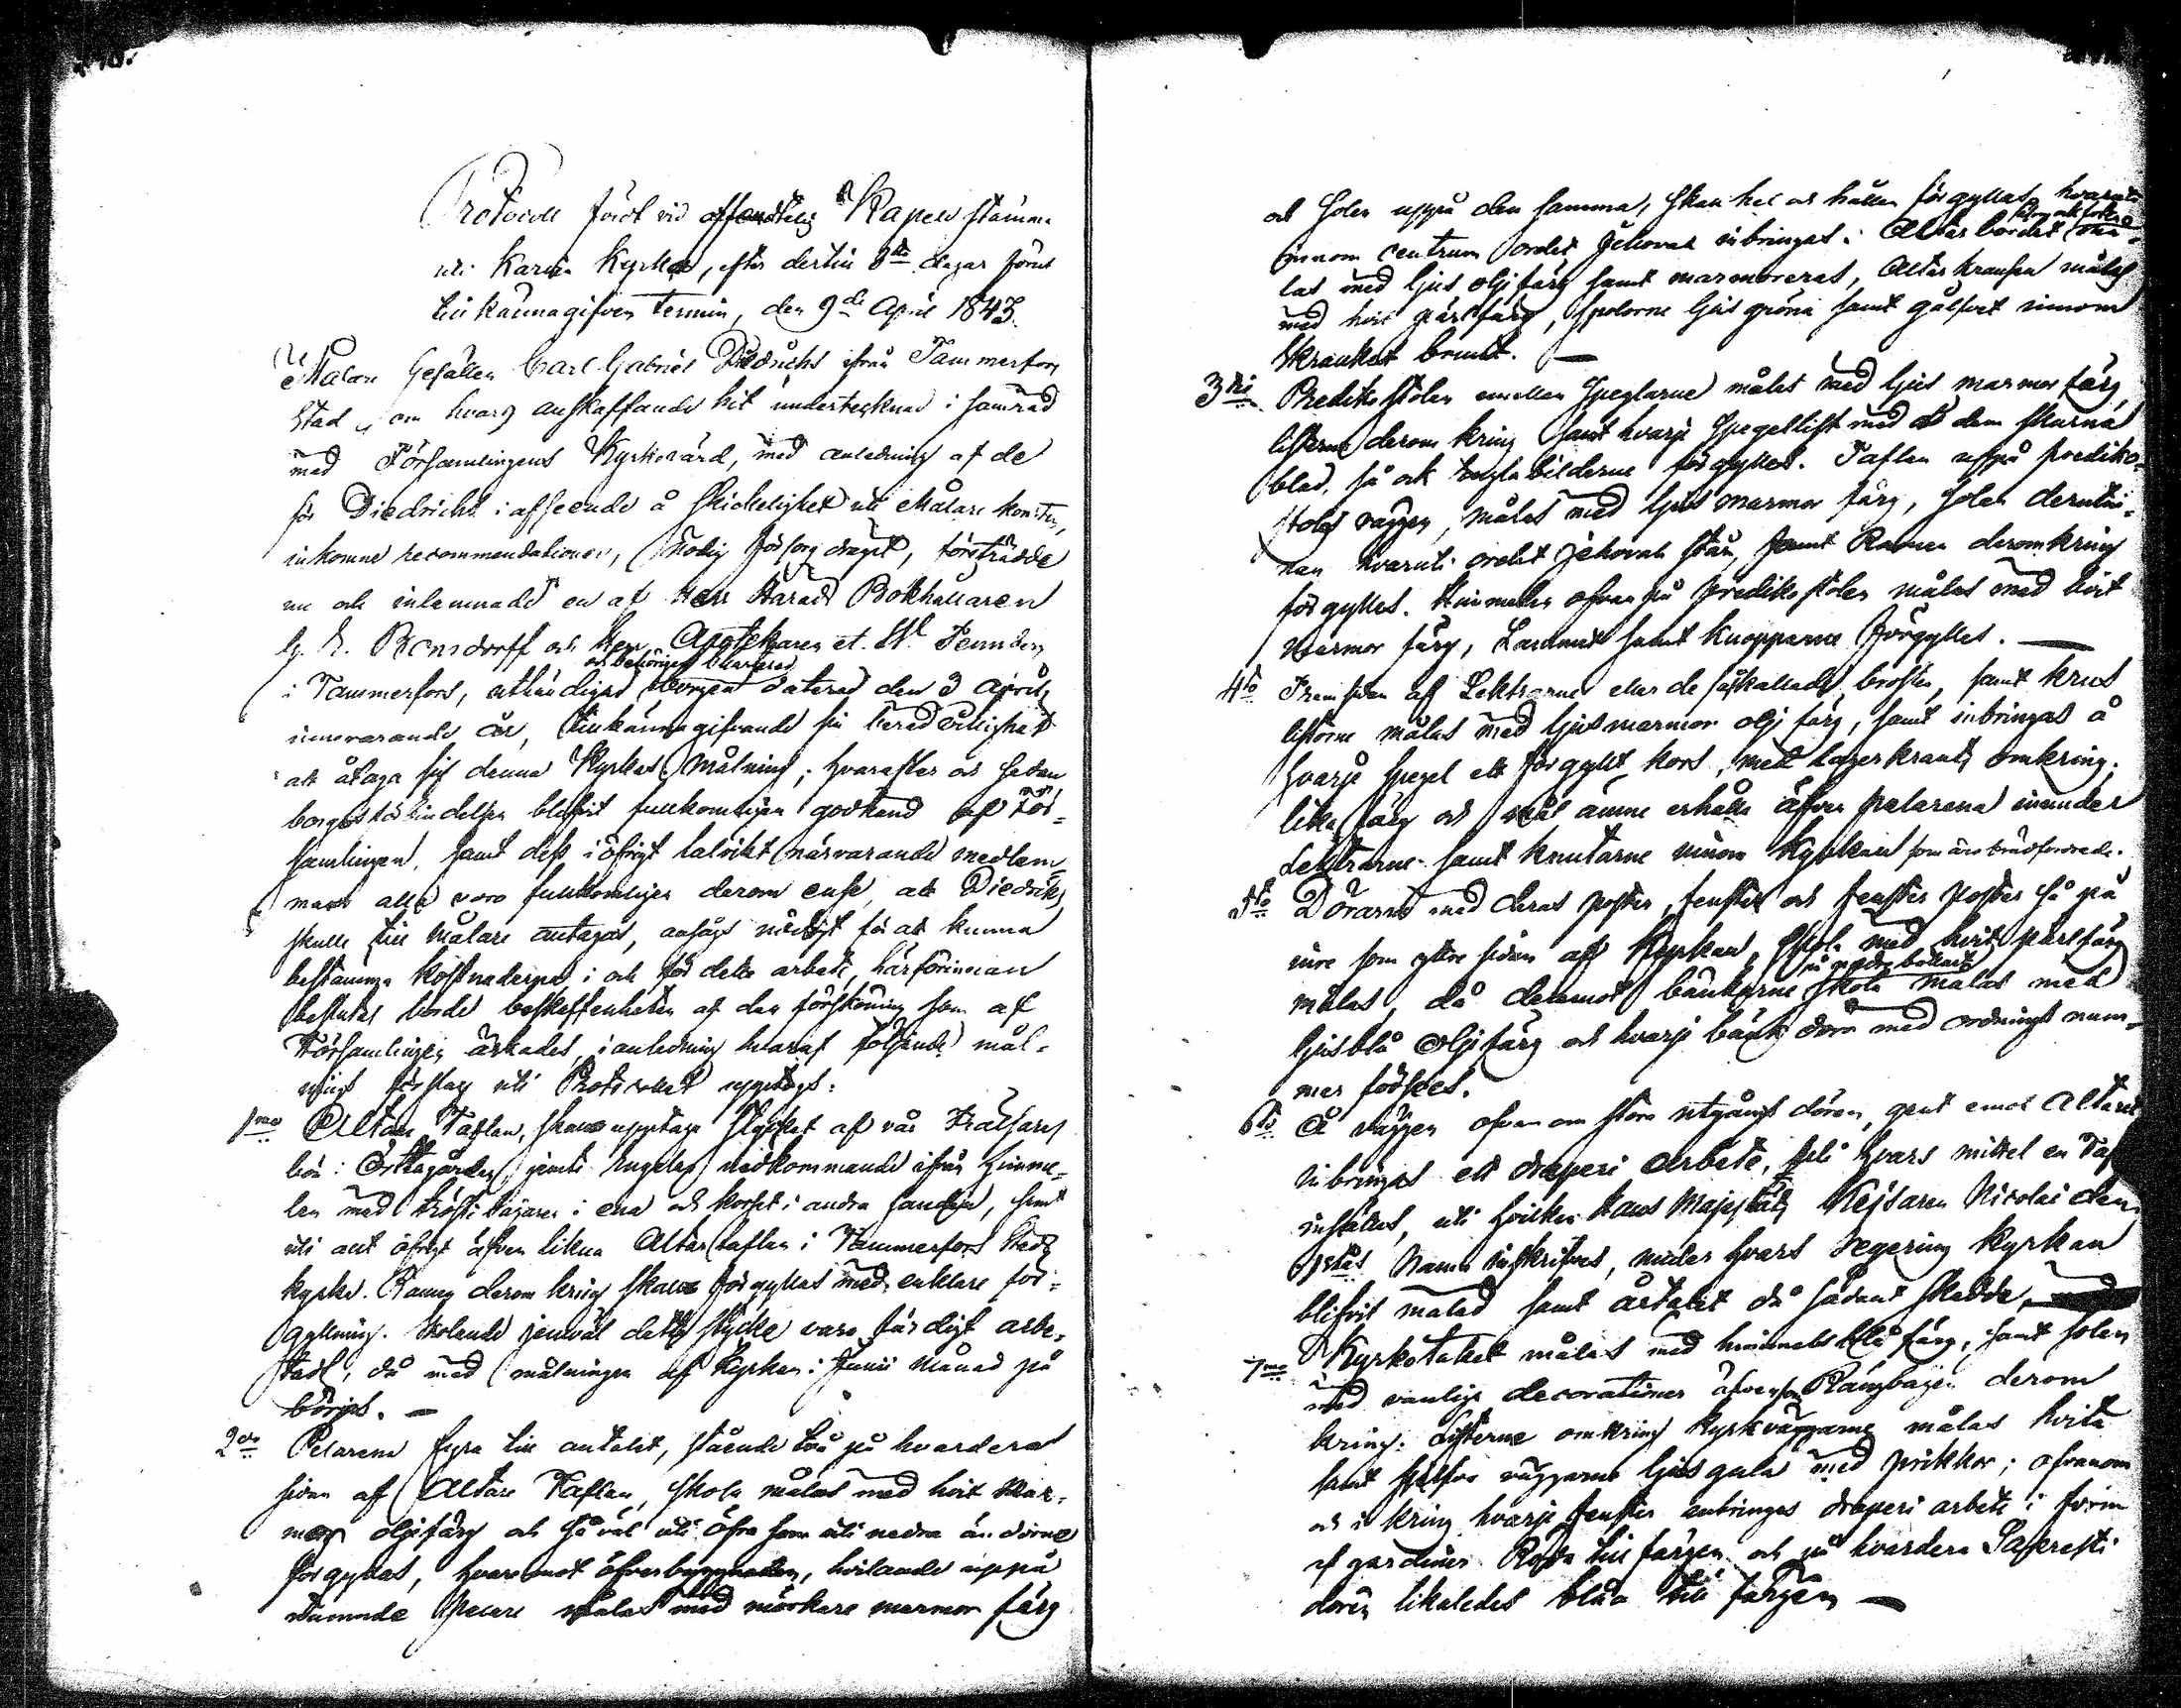 Protocoll fördt vid offendtelig Kapell stämma
uti Karvia Kyrka, efter dertill 8ta dagar förut
tillkännagifven termin, den 9de April 1843.
Målare Gesällen Carl Gabriel Diedrichs ifrån Tammerfors
Stad, om hvars anskaffande hit undertecknad i samråd
med Församlingens Kyrkovärd, med anledning af de
för Diedrichs i afseende å skickelighet uti Målare konsten,
inkomne recommendationer, nödig försorg dragit, företrädde
nu och inlemnade en af Herr Härads Bokhållaren
G. E. Bonsdorff och Herr Apothekaren
och behörigen bevittnad
i Tammerfors, utfärdigad borgen daterad den 3 April
innevarande år, tillkännagifvande sin beredvillighet
att åtaga sig denna Kyrkas målning; hvarefter och sedan
borgesförbindelsen blifvit fullkomligen godkänd af För-
samlingen, samt dess i öfrigt talrikt närvarande medlem-
mar alla voro fullkomligen derom ense, att Diedrichs
skulle till Målare antagas, ansågs nödigt för att kunna
bestämma kostnaderna i och för detta arbete, härförinnan
beslutas borde beskaffenheten af den försköning som af
Församlingen äskades, i anledning hvaraf följande mål-
nings förslag uti Protocollet upptogs:
1mo Altare Taflan, skall upptaga stycket af vår Frälsares
bön i Örtagården jemte Engelen nedkommande ifrån himme-
len med tröste bägaren i ena och korset i andra handen, samt
uti allt öfrigt äfven likna Altartaflan i Tammerfors Stads
kyrka. Ramen deromkring skall förgyllas med enklare för-
gyllning. Skolande jemväl detta stycke vara färdigt arbe-
tadt, då med målningen af Kyrkan i Junii Månad på
börjas. —
2do Pelarena fyra till antalet, stående två på hvardera
sidan af Altare Taflan, skola målas med hvit Mar-
mor oljefärg och såväl uti öfra som uti nedra ändorne
förgyllas, hvaremot öfverbyggnaden, hvilande uppå
nämnde Pelare målas med mörkare marmor färg
och Solen uppå den samma, skall hel och hållen förgyllas hvaruti
innom centrum ordet Jehovah inbringas. Altarbordet må-
las med ljus oljefärg samt marmoreras, Altar kransen målas
med hvit pärlfärg, spolorne ljus gröna samt gålfvet innom
skranket brunt. —
3tio Predikstolen emellan Speglarne målas med ljus marmor färg,
listerne deromkring samt hvarje Spegellist med de dem skurna
blad, så ock Englabilderne förgyllas. Taflan uppå prediko-
stols väggen, målas med ljus marmor färg, Solen derutin-
nan hvaruti ordet Jehovah står, samt Ramen deromkring
förgyllas. Himmelen ofvanpå predikstolen målas med hvit
Marmor färg, Lammet samt knopparne förgyllas. —
4to Framsidan af Lektrarne eller de såkallade brösten, samt krus
listorne målas med ljus marmor olj färg, samt inbringas å
hvarje spegel ett förgyllt kors, med lagerkrants omkring;
lika färg och mål ämne erhålla äfven pelarena inunder
lektrarne samt knutarne innom Kyrkan som äro brädfordrade.
5to Dörarne med deras poster, fenster och fenster poster så på
inre som yttre sidan af Kyrkan, skola med hvit pärlfärg
målas, då deremot bänkarne skola målas med
ljusblå Oljefärg och hvarje bänk dörr med ordnings num-
mer förses.
6to Å väggen ofvan om stora utgångs dören, gent emot Altaret
inbringas ett draperi arbete, uti hvars midtel en Taf
insättes, uti hvilken Hans Majestät Kejsaren Nicolai den
Istes Namn inskrifves, under hvars regering Kyrkan
blifvit målad samt årtalet då sådant skedde,
7mo Kyrkotaket målas med himmels blå färg, samt solen
med vanliga decorationer äfvensom Rängbågen derom
kring. Listerne omkring kyrkväggarne målas hvita
samt sjelfva väggarne ljusgula med prikkor; ofvanom
och i kring hvarje fenster anbringas draperi arbete i form
af gardiner Rosa till färgen och på hvardera Sakresti
dören likaledes blåa till färgen —